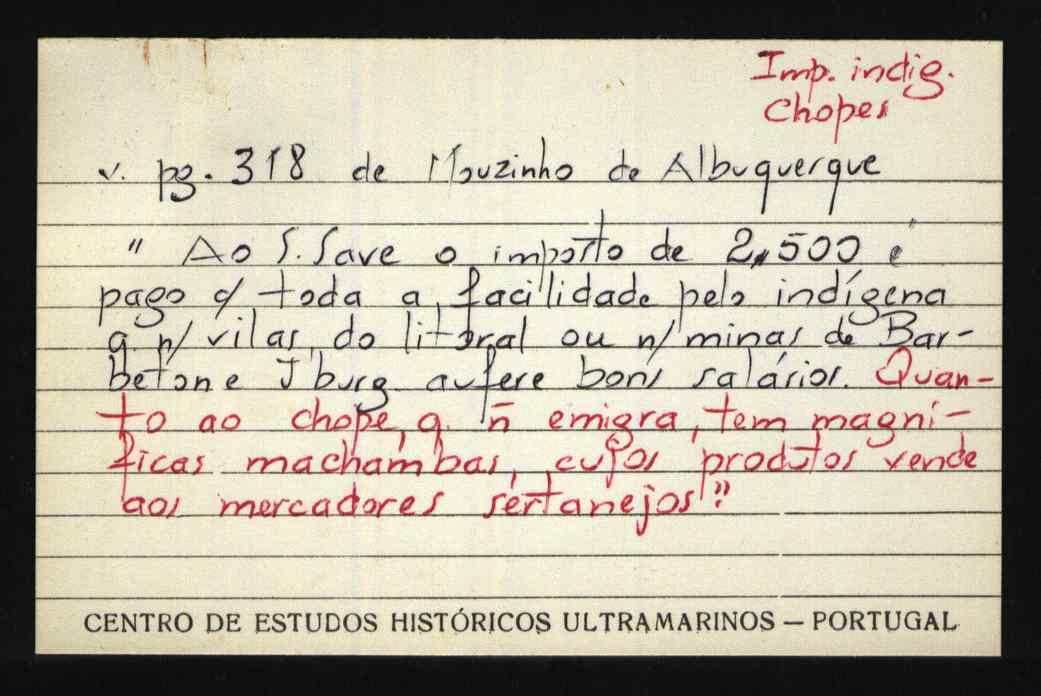 Imp. indig.
Chopes
v. pg. 318 de Mouzinho de Albuquerque
" Ao S. Save o imposto de 2,500 é
pago c/ toda a facilidade pelo indígena
q n/ vilas do litoral ou n/ minas de Bar-
betone J'burg aufere bons salários. Quan-
to ao chope, q. ñ emigra, tem magní-
ficas machambas, cujos produtos vende
aos mercadores sertanejos"
CENTRO DE ESTUDOS HISTÓRICOS ULTRAMARINOS – PORTUGAL